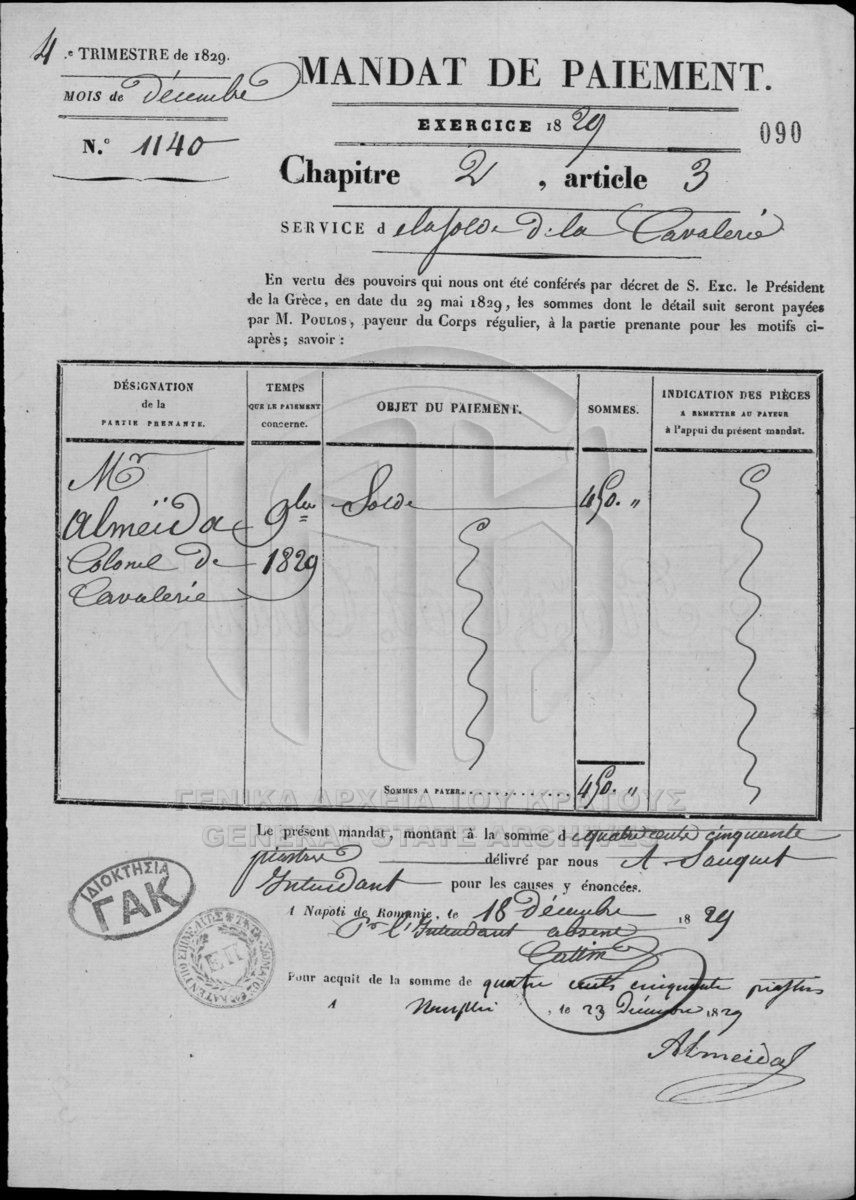 4.e TRIMESTRE de 1829.
MOIS de Décembre
N.o 1140
MANDAT DE PAIEMENT.
EXERCICE 1829
090
Chapitre 2, article 3
SERVICE de la solde de la Cavalerie
En vertu des pouvoirs qui nous ont été conférés par décret de S. Exc. le Président
de la Grèce, en date du 29 mai 1829, les sommes dont le détail suit seront payées
par M. POULOS, payeur du Corps régulier, à la partie prenante pour les motifs ci-
après; savoir :
DÉSIGNATION
de la
PARTIE PRENANTE.
TEMPS
QUE LE PAIEMENT
concerne.
OBJET DU PAIEMENT.
SOMMES.
INDICATION DES PIÈCES
A REMETTRE AU PAYEUR
à l'appui du présent mandat.
Mr
Almeïda
Colonel de
Cavalerie
9bre
1829
Solde
450. "
SOMMES A PAYER............
450. "
ΓΕΝΙΚΑ ΑΡΧΕΙΑ ΤΟΥ ΚΡΑΤΟΥΣ
GENERAL STATE ARCHIVES
Le présent mandat, montant à la somme de quatre cents cinquante
piastres délivré par nous A. Sauquet
Intendant pour les causes y énoncées.
A Napoti de Romanie, le 18 Décembre 1829
Pr l'Intendant absent
ΙΔΙΟΚΤΗΣΙΑ
ΓΑΚ
Ε Π
Pour acquit de la somme de quatre cents cinquante piastres
A , le 23 Décembre 1829
Almeida